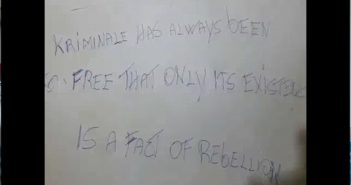 KRIMINALE HAS ALWAYS BEEN
SO FREE THAT ONLY ITS EXISTENC
IS A FACT OF REBELLION